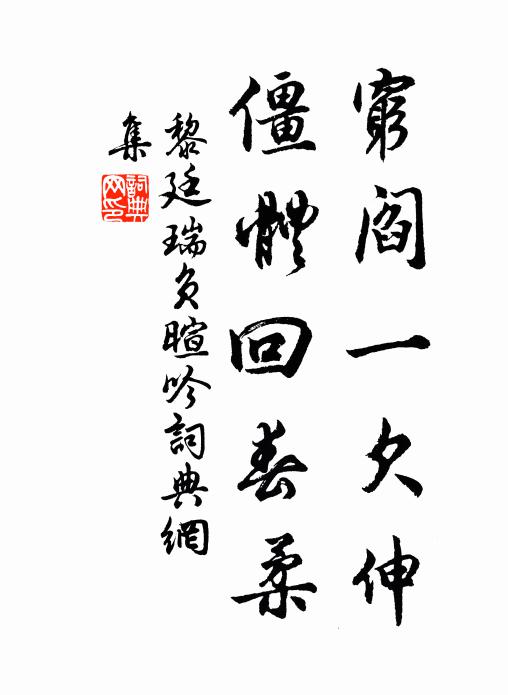 窮閻一欠伸
僵體回春柔
黎廷瑞負暄吟詞典網
集
詞典網印